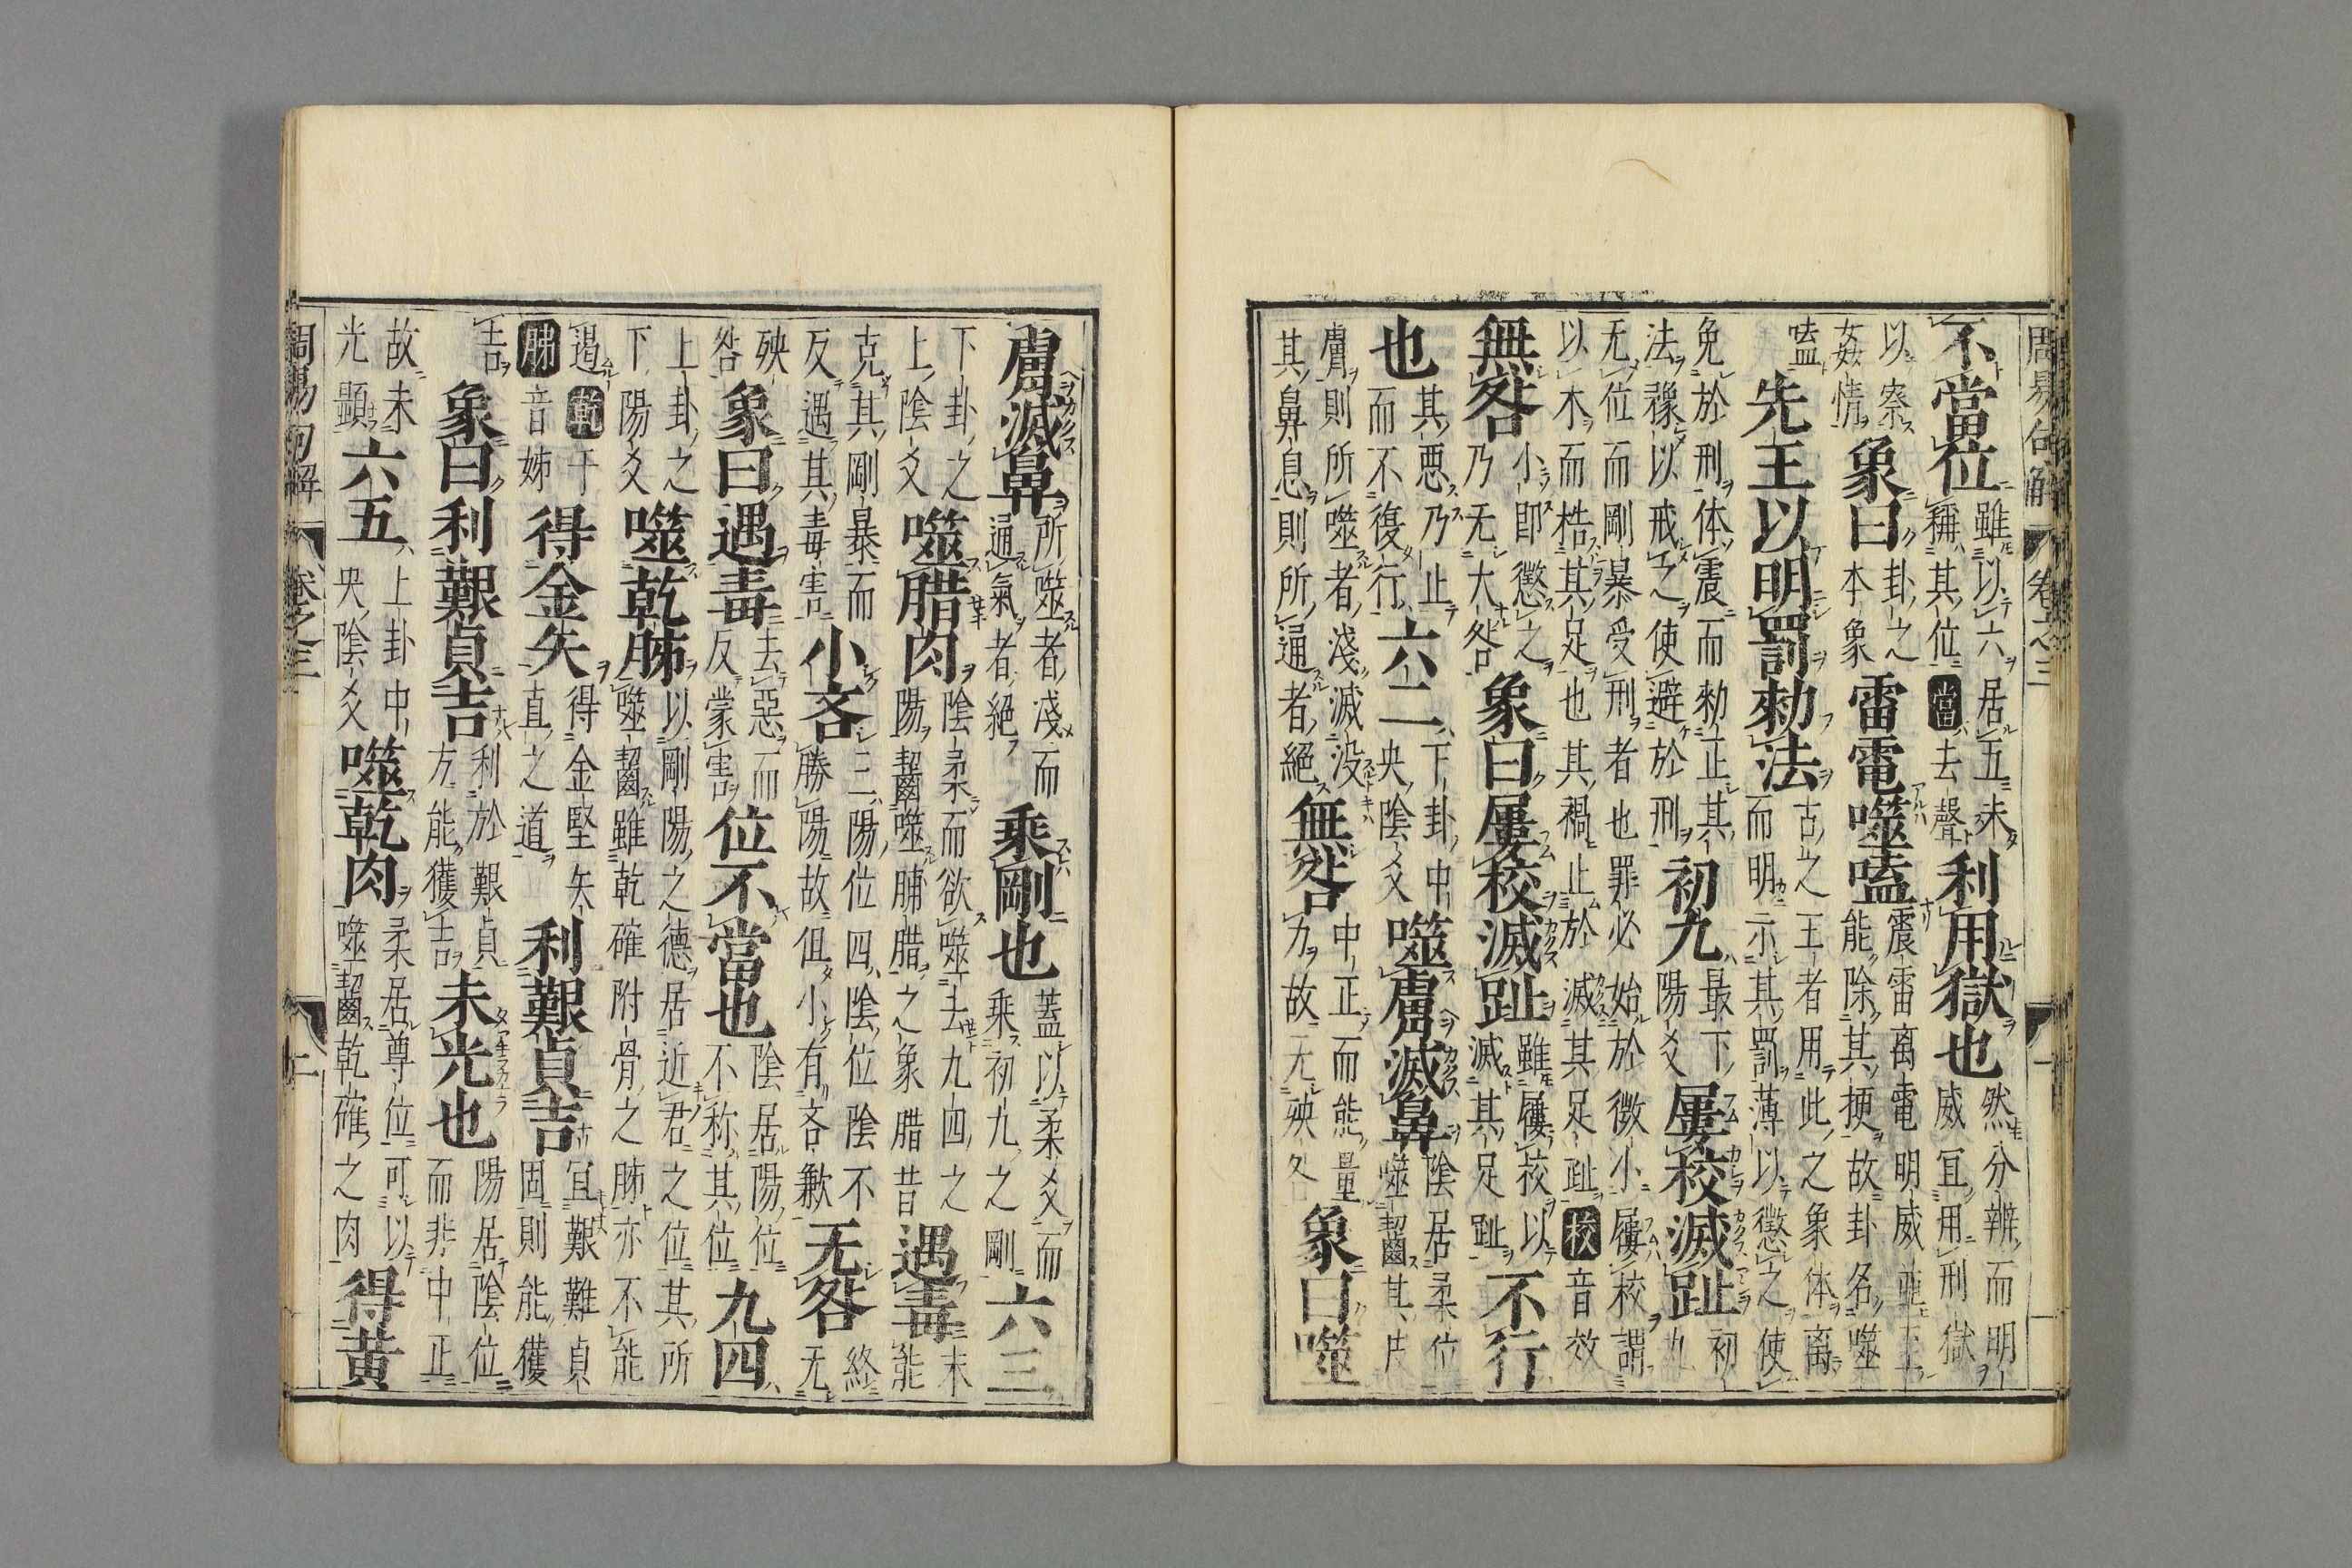 周易句解 卷之三 一
不當位雖以六居五未稱其位當去聲利用獄也然分辨而明威宜用刑獄
以察姦情象曰卦之本象雷電噬嗑震雷离電明威並至能除其梗故卦名噬
嗑先王以明罰勑法古之王者用此之象体离而明示其罰薄以懲之使
免於刑体震而勑正其法豫以戒之使避於刑初九最下陽爻屨校滅趾初九
无位而剛暴受刑者也罪必始於微小屨校謂以木而梏其足也其禍止於滅其足趾校音效
無咎小即懲之乃无大咎象曰屨校滅趾雖屨校以滅其足趾不行
也其惡乃止而不復行六二下卦中央陰爻噬膚滅鼻陰居柔位噬齧其皮
膚則所噬者淺滅没其鼻息則所通者絕無咎中正而能量力故无殃象曰噬
膚滅鼻所噬者淺而通氣者絕乘剛也蓋以柔爻而乘初九之剛六三
下卦之上陰爻噬腊肉陰柔而欲噬去九四之陽齧噬脯腊之象腊昔遇毒未能
克其剛暴而反遇其毒害小吝三陽位四陰位陰不勝陽故但小有吝歉无咎終无
殃咎象曰遇毒去惡而反蒙害位不當也陰居陽位不称其位九四
上卦之下陽爻噬乾胏以剛陽之德居近君之位其所噬齧雖乾確附骨之胏亦不能
遏乾干胏音姊得金矢得金堅矢直之道利艱貞吉宜艱難貞固則能獲
吉象曰利艱貞吉利於艱貞方能獲吉未光也陽居陰位而非中正
故未光顯六五上卦中央陰爻噬乾肉柔居尊位可以噬齧乾確之肉得黃
周易句解 卷之三 二